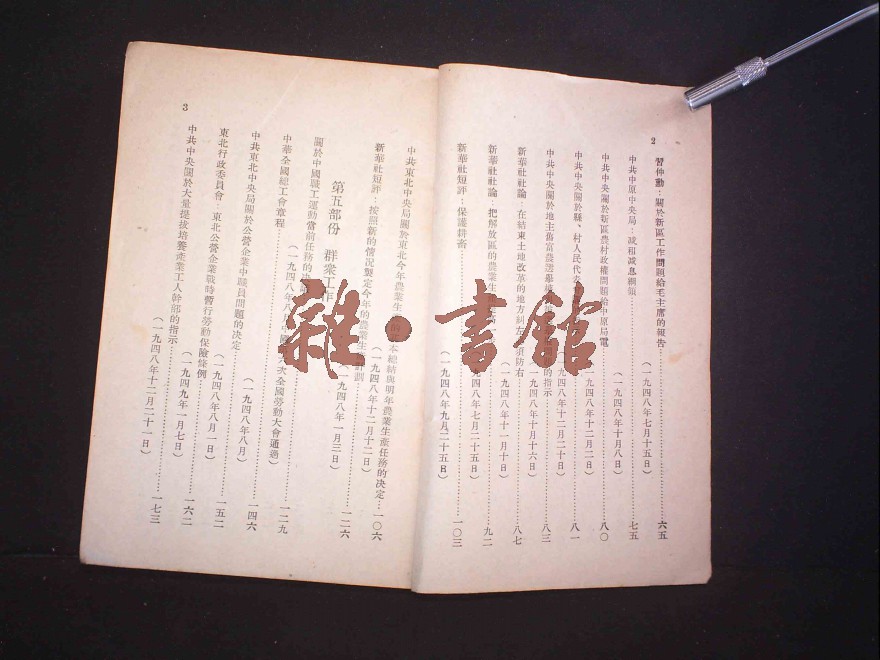 2
習仲勳：關於新區工作問題給毛主席的報告……六五
（一九四八年七月十五日）
中共中原中央局：減租減息綱領……七五
（一九四八年十月八日）
中共中央關於新區農村政權問題給中原局電……八〇
（一九四八年十二月二日）
中共中央關於縣、村人民代表……八一
（一九四八年十二月二十日）
中共中央關於地主舊富農選舉……的指示……八三
（一九四八年十月十六日）
新華社社論：在結束土地改革的地方糾左必須防右……八七
（一九四八年十一月十日）
新華社社論：把解放區的農業生產……九二
（一九四八年七月二十五日）
新華社短評：保護耕畜……一〇三
（一九四八年九月二十五日）
中共東北中央局關於東北今年農業生產……本總結與明年農業生產任務的決定……一〇六
（一九四八年十二月十二日）
新華社短評：按照新的情況製定今年的農業生產計劃……一二六
一九四八年一月三日）
第五部份　群衆工作
關於中國職工運動當前任務的決
（一九四八年八月中國第六次全國勞動大會通過）
中華全國總工會章程……一二九
（一九四八年八月）
中共東北中央局關於公營企業中職員問題的決定……一四六
（一九四八年八月一日）
東北行政委員會：東北公營企業戰時暫行勞動保險條例……一五二
（一九四九年一月七日）
中共中央關於大量提拔培養產業工人幹部的指示……一六二
（一九四八年十二月二十一日）……一七三
3
雜·書館